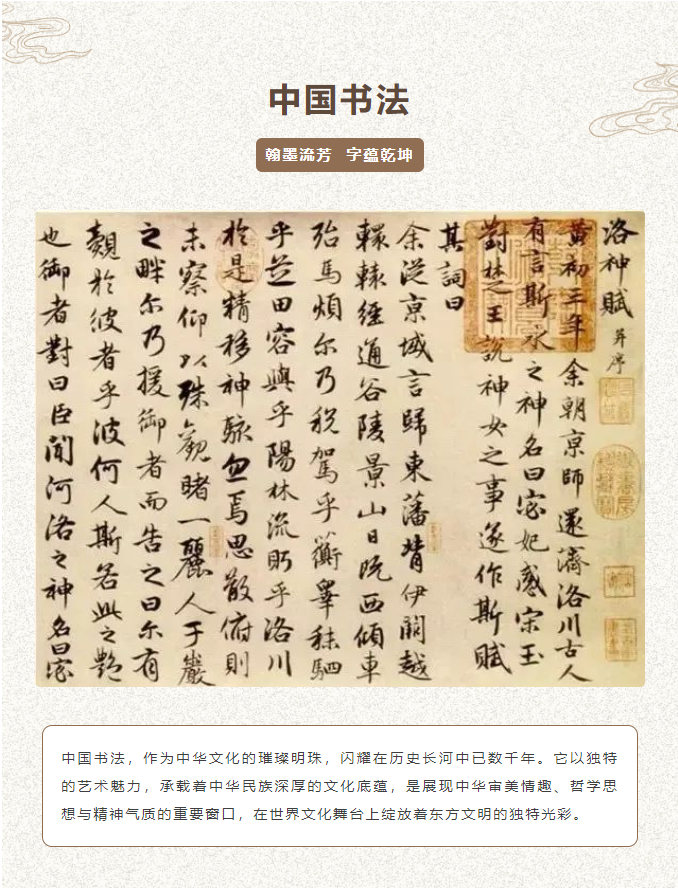 中国书法
翰墨流芳 字蕴乾坤
洛神賦 并序
黃初三年余朝京師還濟洛川古人
有言斯水之神名曰宓妃感宋玉
對楚王說神女之事遂作斯賦
其詞曰
余從京域言歸東藩背伊闕越
轘轅經通谷陵景山日既西傾車
殆馬煩尔乃稅駕乎蘅皋秣駟
乎芝田容與乎陽林流眄乎洛川
於是精移神駭忽焉思散俯則
未察仰以殊觀睹一麗人于巖
之畔尔乃援御者而告之曰尔有
覿於彼者乎彼何人斯若此之艷
也御者對曰臣聞河洛之神名曰宓
中国书法，作为中华文化的璀璨明珠，闪耀在历史长河中已数千年。它以独特
的艺术魅力，承载着中华民族深厚的文化底蕴，是展现中华审美情趣、哲学思
想与精神气质的重要窗口，在世界文化舞台上绽放着东方文明的独特光彩。